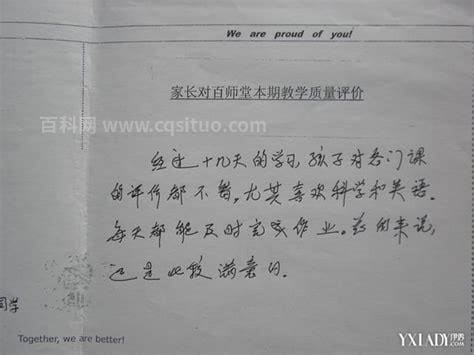 We are proud of you!
家长对百师堂本期教学质量评价
百科网 www.cqsituo.com
经过十几天的学习,孩子对各门课
的评价都不错。尤其喜欢科学和英语。
每天都能及时完成作业。总的来说,
还是比较满意的。
同学
Together, we are better!
YXLADY.COM